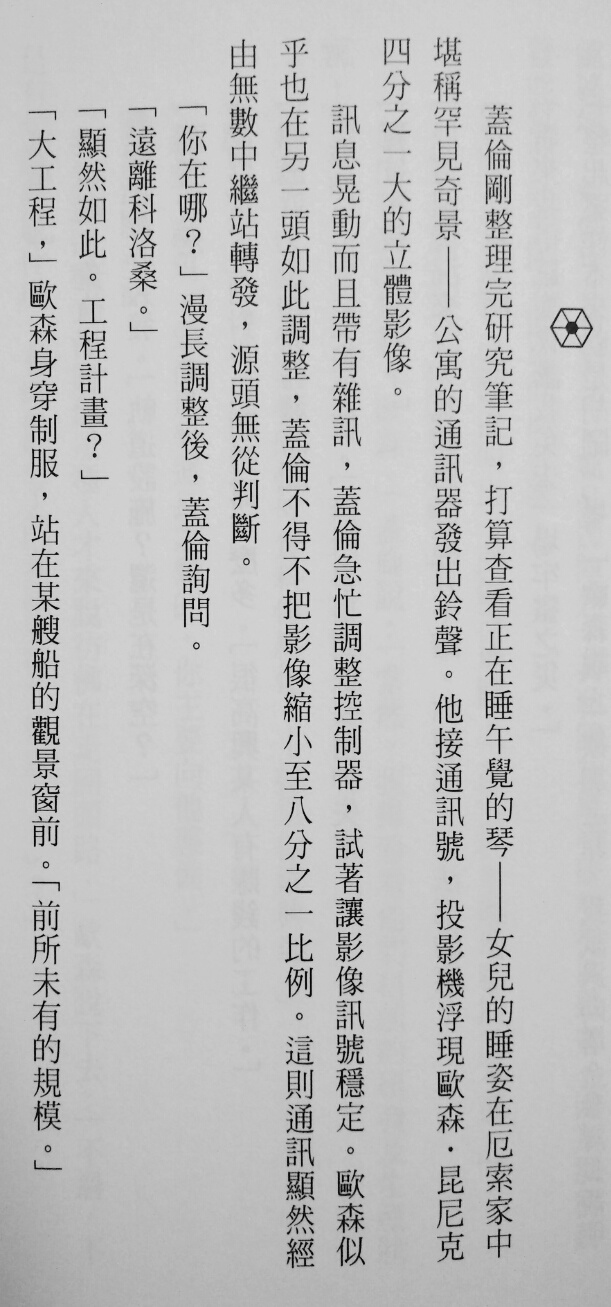 蓋倫剛整理完研究筆記，打算查看正在睡午覺的琴——女兒的睡姿在厄索家中
堪稱罕見奇景——公寓的通訊器發出鈴聲。他接通訊號，投影機浮現歐森．昆尼克
四分之一大的立體影像。
訊息晃動而且帶有雜訊，蓋倫急忙調整控制器，試著讓影像訊號穩定。歐森似
乎也在另一頭如此調整，蓋倫不得不把影像縮小至八分之一比例。這則通訊顯然經
由無數中繼站轉發，源頭無從判斷。
「你在哪？」漫長調整後，蓋倫詢問。
「遠離科洛桑。」
「顯然如此。工程計畫？」
「大工程，」歐森身穿制服，站在某艘船的觀景窗前。「前所未有的規模。」